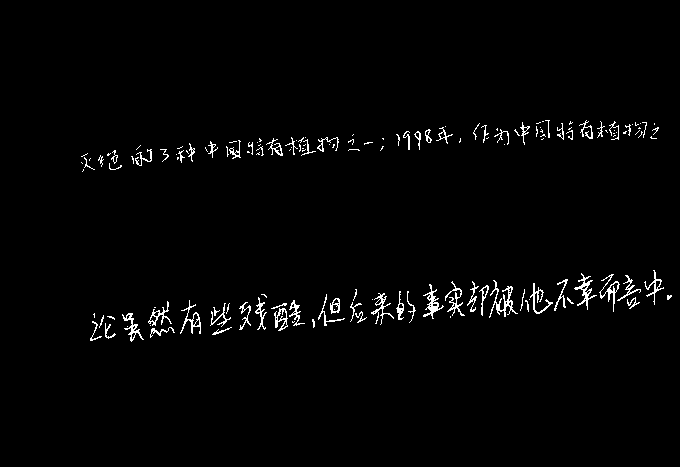 灭绝的3种中国特有植物之一；1998年，作为中国特有植物之
论虽然有些残酷，但后来的事实却被他不幸而言中。